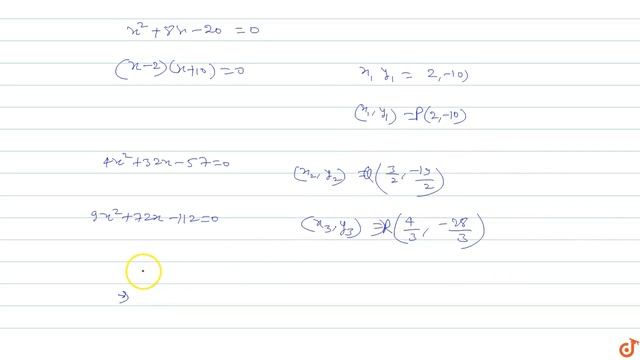 x² + 8x - 20 = 0
(x-2)(x+10) = 0
x₁ y₁ = 2, -10)
(x₁, y₁) = P(2, -10)
4x² + 32x - 57 = 0
(x₂, y₂) ≡ Q(3/2, -19/2)
9x² + 72x - 112 = 0
(x₃, y₃) ≡ R(4/3, -28/3)
⇒